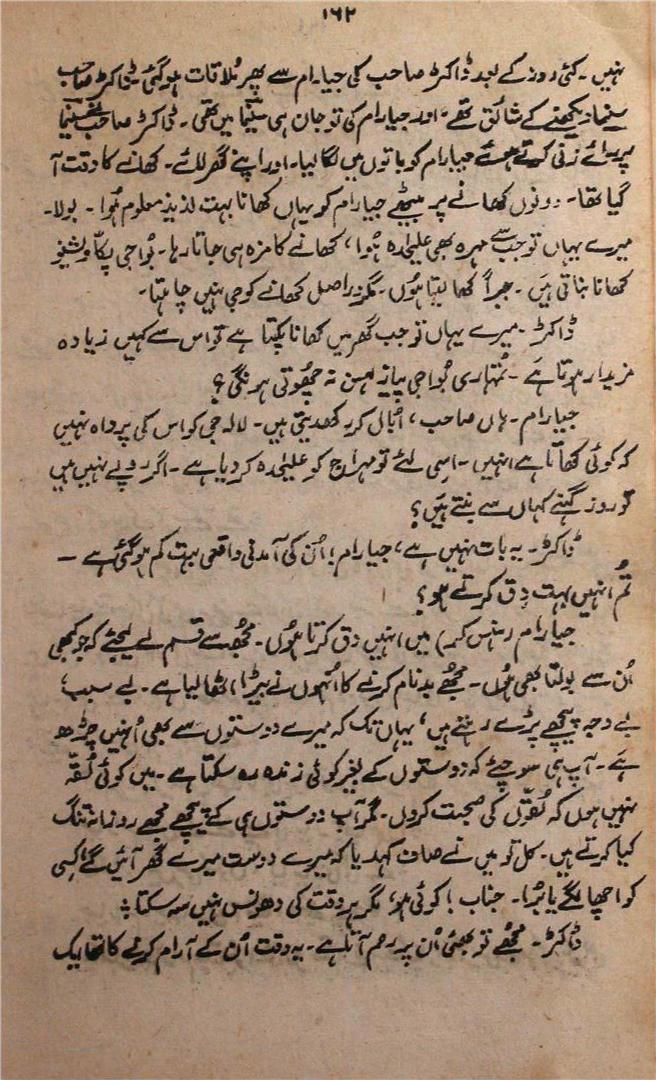 ۱۶۲
نہیں ۔ کئی روز کے بعد ڈاکٹر صاحب کی جیارام سے پھر ملاقات ہوگئی۔ ڈاکٹر صاحب
سنیما دیکھنے کے شائق تھے۔ اور جیارام کی تو جان ہی سنیما میں تھی ۔ ڈاکٹر صاحب سنیما
پر رائے زنی کرتے ہوئے جیارام کو باتوں میں لگا لیا۔ اور اپنے گھر لائے۔ کھانے کا وقت آ
گیا تھا۔ دونوں کھانے پر بیٹھے جیارام کو یہاں کھانا بہت لذیذ معلوم ہُوا ۔ بولا۔
میرے یہاں تو جب سے مہرہ بھی علیحدہ ہُوا، کھانے کا مزہ ہی جاتا رہا۔ بُوا جی پکّا ویشنو
کھانا بناتی ہیں ۔ جبراً کھا لیتا ہُوں۔ مگر دراصل کھانے کو جی نہیں چاہتا۔
ڈاکٹر ۔ میرے یہاں تو جب گھر میں کھانا پکتا ہے تو اس سے کہیں زیادہ
مزیدار ہوتا ہے ۔ تُمہاری بُوا جی پیاز لہسن نہ چھُوتی ہونگی؟
جیارام۔ ہاں صاحب، اُبال کر رکھدیتی ہیں۔ لالہ جی کو اس کی پرواہ نہیں
کہ کوئی کھاتا ہے انہیں ۔ اسی لئے تو مہراج کو علیحدہ کر دیا ہے ۔ اگر روپے نہیں ہیں
تو روز گہنے کہاں سے بنتے ہیں؟
ڈاکٹر۔ یہ بات نہیں ہے، جیارام! اُن کی آمدنی واقعی بہت کم ہوگئی ہے —
تُم انہیں بہت دِق کرتے ہو؟
جیارام (ہنس کر) میں انہیں دق کرتا ہُوں۔ مجھُ سے قسم لے لیجئے کہ جو کبھی
اُن سے بولتا بھی ہُوں۔ مجھے بدنام کرنے کا اُنہوں نے بیڑا اٹھا لیا ہے ۔ بے سبب،
بے وجہ پیچھے پڑے رہتے ہیں، یہاں تک کہ میرے دوستوں سے بھی اُنہیں چڑھ
ہے ۔ آپ ہی سوچئے کہ دوستوں کے بغیر کوئی زندہ رہ سکتا ہے ۔ میں کوئی لُقّہ
نہیں ہوں کہ لُقّوں کی صحبت کروں۔ مگر آپ دوستوں ہی کے پیچھے مجھے روزانہ تنگ
کیا کرتے ہیں۔ کل تو میں نے صاف کہدیا کہ میرے دوست میرے گھر آئیں گے، کسی
کو اچھا لگے یا بُرا۔ جناب! کوئی ہو، مگر ہر وقت کی دھونس نہیں سہ سکتا؛
ڈاکٹر۔ مجھے تو بھئی اُن پر رحم آتا ہے ۔ یہ وقت اُن کے آرام کرنے کا تھا ایک